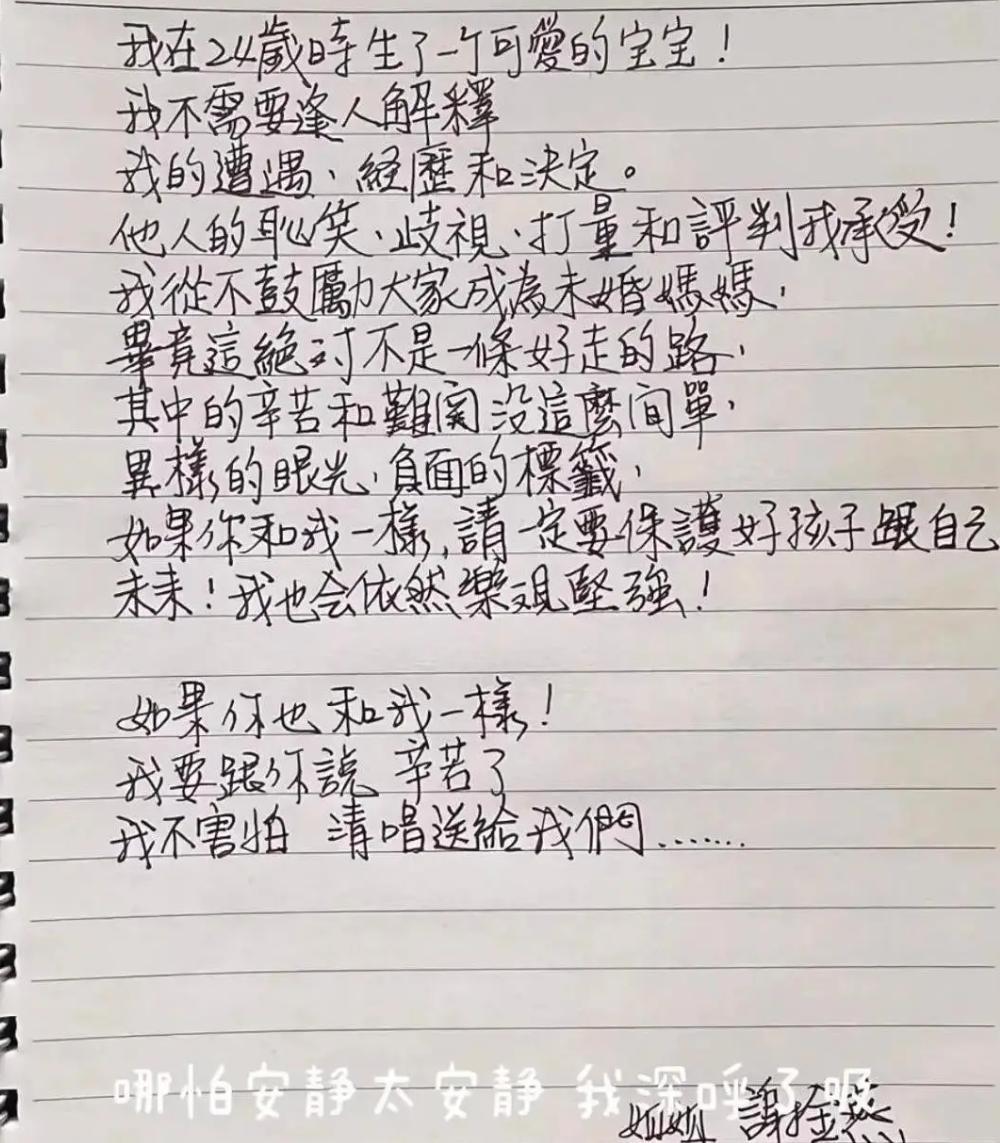 我在24歲時生了一个可愛的宝宝！
我不需要逢人解釋
我的遭遇、經歷和決定。
他人的恥笑、歧視、打量和評判我承受！
我從不鼓勵大家成為未婚媽媽、
畢竟這絕对不是一條好走的路、
其中的辛苦和難関没這麼间單、
異樣的眼光、負面的標籤、
如果你和我一樣，請一定要保護好孩子跟自己
未来！我也会依然樂观堅強！
如果你也和我一樣！
我要跟你說 辛苦了
我不害怕 清唱送給我們.......
哪怕安静太安静 我深呼了吸